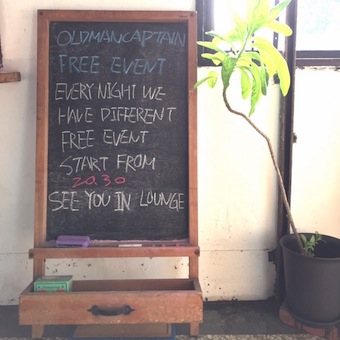 OLDMANCAPTAIN
FREE EVENT
EVERY NIGHT WE
HAVE DIFFERENT
FREE EVENT
START FROM
20.30
SEE YOU IN LOUNGE